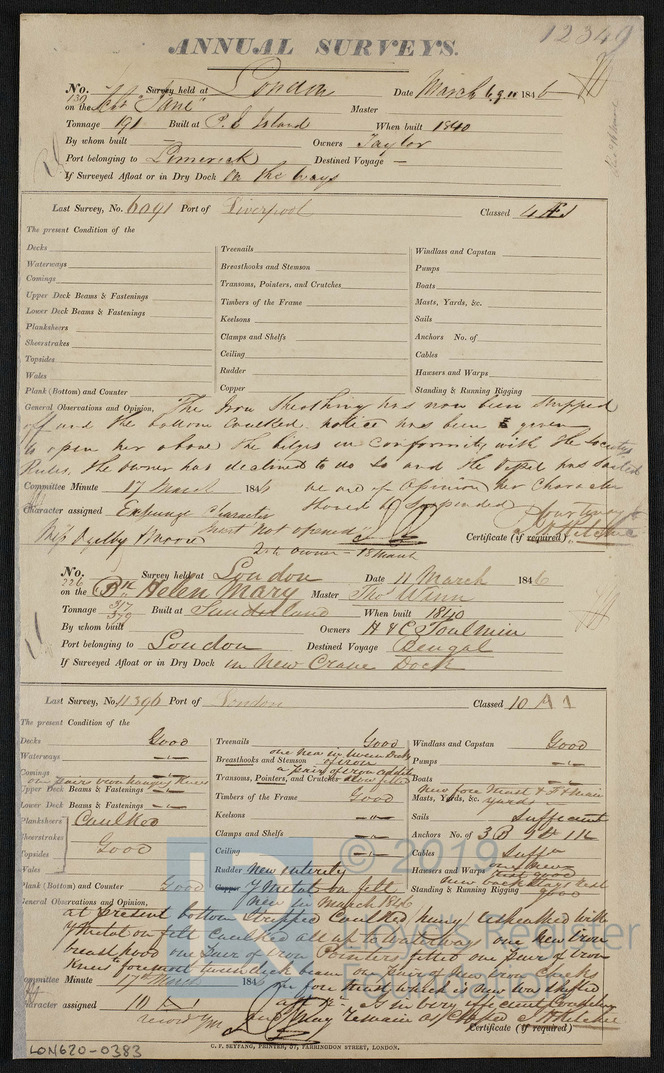 12349
ANNUAL SURVEYS.
No. 130 Survey held at London Date March 6, 9, 11 1846
on the Schr "Jane" Master
Tonnage 191 Built at P. E Island When built 1840
By whom built Owners Taylor
Port belonging to Limerick Destined Voyage —
If Surveyed Afloat or in Dry Dock On the ways
Last Survey, No. 6091 Port of Liverpool Classed 4 Æ1
The present Condition of the
Decks Treenails Windlass and Capstan
Waterways Breasthooks and Stemson Pumps
Comings Transoms, Pointers, and Crutches Boats
Upper Deck Beams & Fastenings Timbers of the Frame Masts, Yards, &c.
Lower Deck Beams & Fastenings Keelsons Sails
Planksheers Clamps and Shelfs Anchors No. of
Sheerstrakes Ceiling Cables
Topsides Rudder Hawsers and Warps
Wales Copper Standing & Running Rigging
Plank (Bottom) and Counter
General Observations and Opinion, The Iron Sheathing has now been stripped
off and the bottom caulked. notice has been given
to open her above the bilges in conformity with the Societys
Rules. The owner has declined to do so and the Vessel has sailed
Committee Minute 17 March 1846 we are of opinion her character
should be suspended
Character assigned Expunge character
insert "not opened"
Certificate (if required) J H Ritchie
owner - 18 March
No. 226 Survey held at London Date 11 March 1846
on the Bk Helen Mary Master Thos Winn
Tonnage 317 379 Built at Sunderland When built 1840
By whom built Owners H & C Toulmin
Port belonging to London Destined Voyage Bengal
If Surveyed Afloat or in Dry Dock in New Crane Dock
Last Survey, No. 11396 Port of London Classed 10 A1
The present Condition of the
Decks Good Treenails Good Windlass and Capstan Good
Waterways -"- one new in tween Decks of iron
Breasthooks and Stemson Pumps -"-
Comings -"- a pair of iron added
Transoms, Pointers, and Crutches also fitted Boats -"-
one pair iron hanging knees
Upper Deck Beams & Fastenings -"- Timbers of the Frame Good new fore Mast & F & Main yards
Masts, Yards, &c.
Lower Deck Beams & Fastenings -"- Keelsons -"- Sails Sufficient
Planksheers Caulked Clamps and Shelfs -"- Anchors No. of 3 B 1 St 1 K
Sheerstrakes Good Ceiling -"- Cables Suffn
Topsides Rudder New entirely Hawsers and Warps one new rest good
Wales
Plank (Bottom) and Counter Good Copper Y Metal on felt Standing & Running Rigging new backstays rest good
new in March 1846
General Observations and Opinion,
at present bottom stripped Caulked newly resheathed with
Y Metal on felt Caulked all up to Waterways one new iron
breasthood one pair of iron Pointers fitted one pair of iron
Knees foremost tween deck beam one pair of new iron
Committee Minute 17th March 1846 new fore mast which is now was shifted
Character assigned 10 A1
and may remain as Classed J H Ritchie
record YM
Certificate (if required)
C. F. SEYFANG, PRINTER, 57, FARRINGDON STREET, LONDON.
LON620-0383
© 2019
Lloyd's Register
Foundation